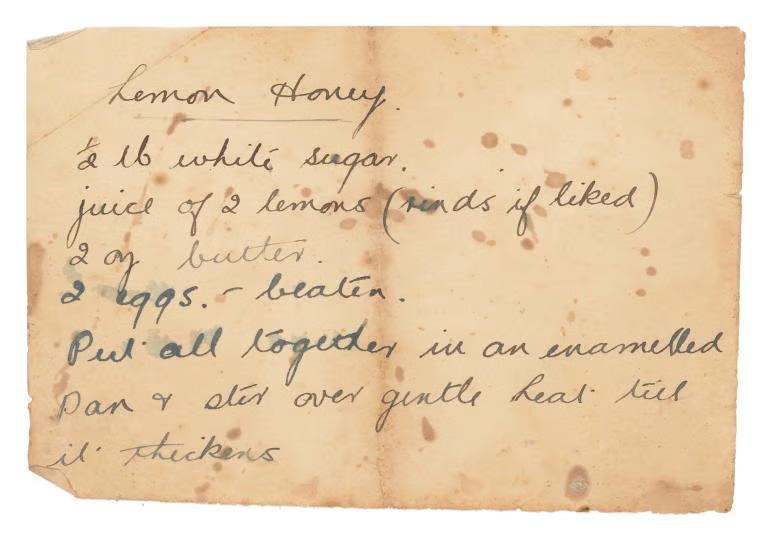 Lemon Honey.
½ lb white sugar.
juice of 2 lemons (rinds if liked)
2 oz butter.
2 eggs. - beaten.
Put all together in an enamelled
Pan & stir over gentle heat till
it thickens